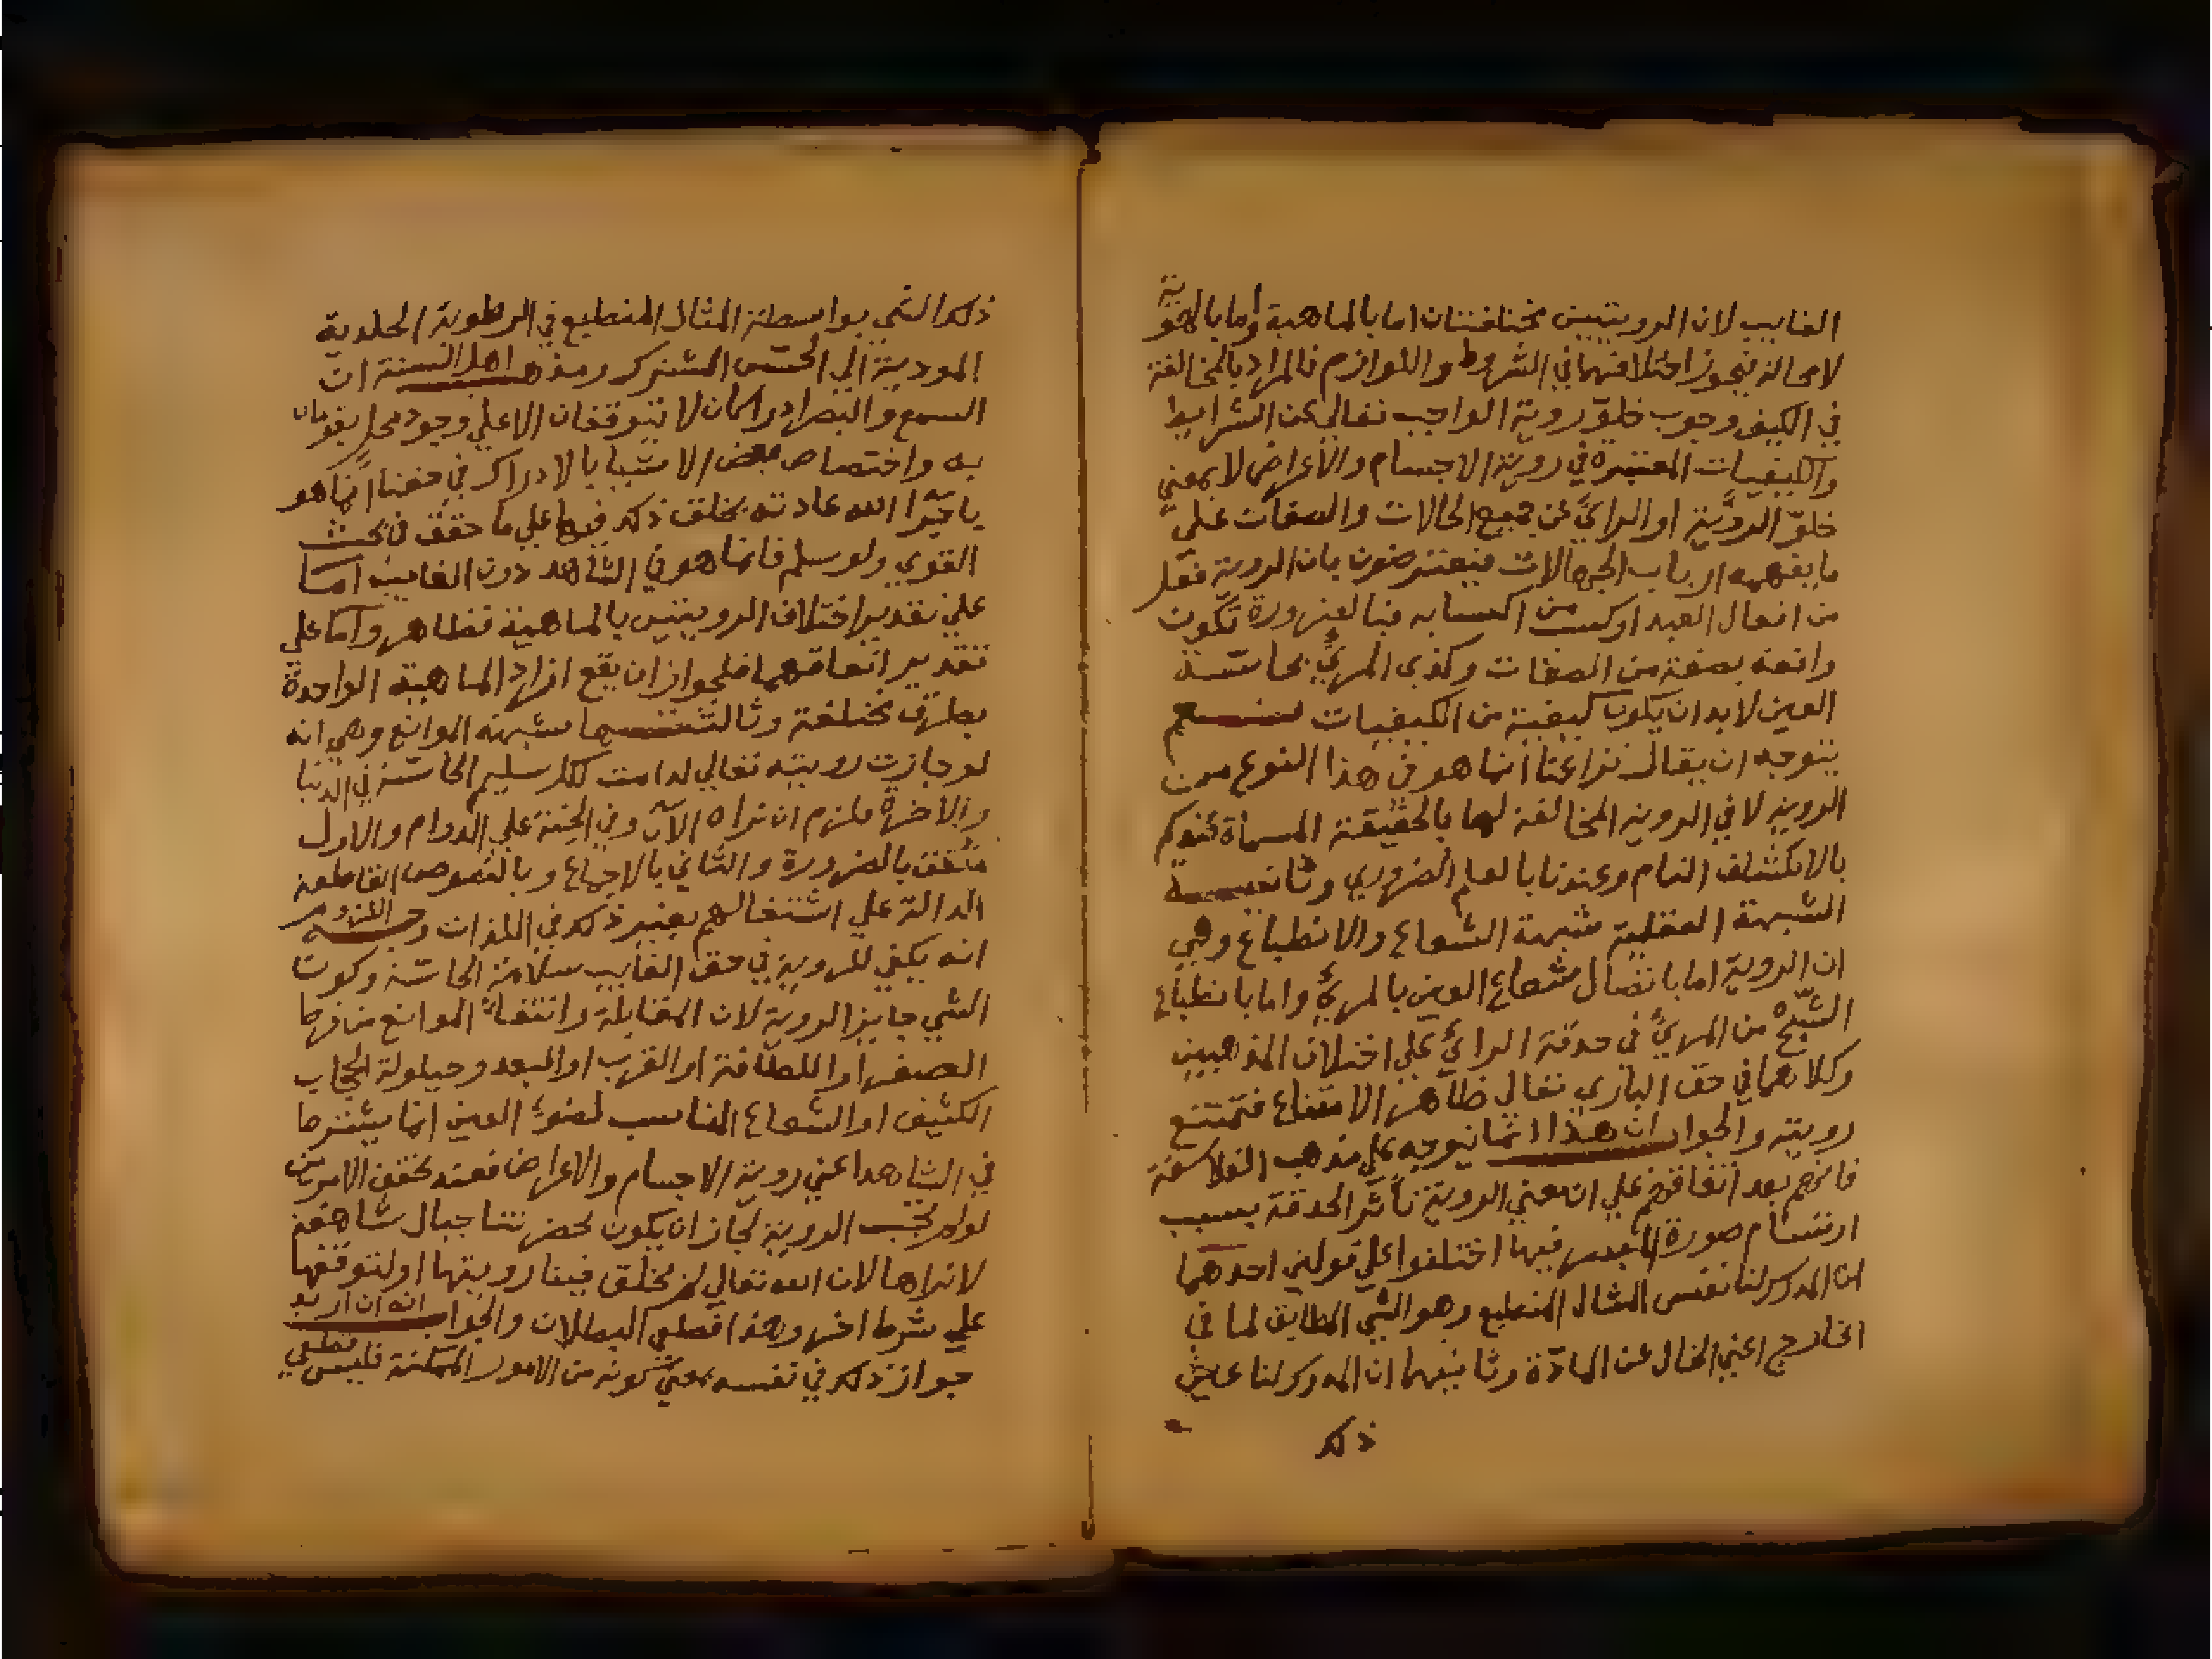 الغايب لان الرويتين مختلفتان اما بالماهية واما بالهوية
لا محالة فيجوز اختلافهما في الشروط واللوازم فالمراد بالمخالفة
في الكيف وجوب خلوّ روية الواجب تعالي عن الشرايط
والكيفيات المعتبرة في روية الاجسام والاعراض لا بمعني
خلوّ الروية او الرائي عن جميع الحالات والصفات علي
ما يفهمه ارباب الجهالات فيعترضون بان الروية فعل
من افعال العبد او كسب من اكسابه فبالضرورة تكون
واقعة بصفة من الصفات وكذي المرئي بحاسة
العين لابد ان يكون كيفية من الكيفيات نعم
يتوجه ان يقال نزاعنا انما هو في هذا النوع من
الروية لا في الروية المخالفة لها بالحقيقة المسماة عندكم
بالانكشاف التام وعندنا بالعلم الضروري وثانية
الشبهة العقلية شبهة الشعاع والانطباع وهي
ان الروية اما باتصال شعاع العين بالمرئي واما بانطباع
الشبح من المرئي في حدقة الرائي علي اختلاف المذهبين
وكلاهما في حق الباري تعالي ظاهر الامتناع فتمتنع
رويته والجواب ان هذا انما يتوجه علي مذهب الفلاسفة
فانهم بعد اتفاقهم علي ان معني الروية تأثر الحدقة بسبب
ارتسام صورة المبصر فيها اختلفوا علي قولين احدهما
ان المدرك لنا نفس المثال المنطبع وهو الشي المطابق لما في
الخارج اعني الخال عن المادّة وثانيهما ان المدرك لنا عين
ذلك
ذلك الشي بواسطة المثال المنطبع في الرطوبة الجلدية
المودية الي الحس المشترك ومذهب اهل السنة ان
السمع والبصر ادراكان لا يتوقفان الا علي وجود محل يقومان
به واختصاص بعض الاشيا بالادراك في حقنا انما هو
باجراء الله عادته بخلق ذلك فيها علي ما حقق في بحث
القوي ولو سلم فانما هو في الشاهد دون الغايب اما
علي تقدير اختلاف الرويتين بالماهية فظاهر واما علي
تقدير اتفاقهما فلجواز ان يقع افراد الماهية الواحدة
بطرق مختلفة وثالثتها شبهة الموانع وهي انه
لو جازت رويته تعالي لدامت لكل سليم الحاسة في الدنيا
والاخرة فلزم ان نراه الآن وفي الجنة علي الدوام والاول
منتف بالضرورة والثاني بالاجماع وبالنصوص القاطعة
الدالة علي اشتغالهم بغير ذلك في اللذات وجه اللزوم
انه يكفي للروية في حق الغايب سلامة الحاسة وكون
الشي جايز الروية لان المقابلة وانتفاء الموانع من فرط
الصغر او اللطافة او القرب او البعد وحيلولة الحجاب
الكثيف او الشعاع المناسب لضوء العين انما يشترط
في الشاهد اعني روية الاجسام والاعراض فعند تحقق الامرين
لو لم تجب الروية لجاز ان يكون بحضرتنا جبال شاهقة
لا نراها لان الله تعالي لم يخلق فينا رويتها او لتوقفها
علي شرط اخر وهذا قطعي البطلان والجواب انه ان اريد
جواز ذلك في نفسه بمعني كونه من الامور الممكنة فليس قطعي